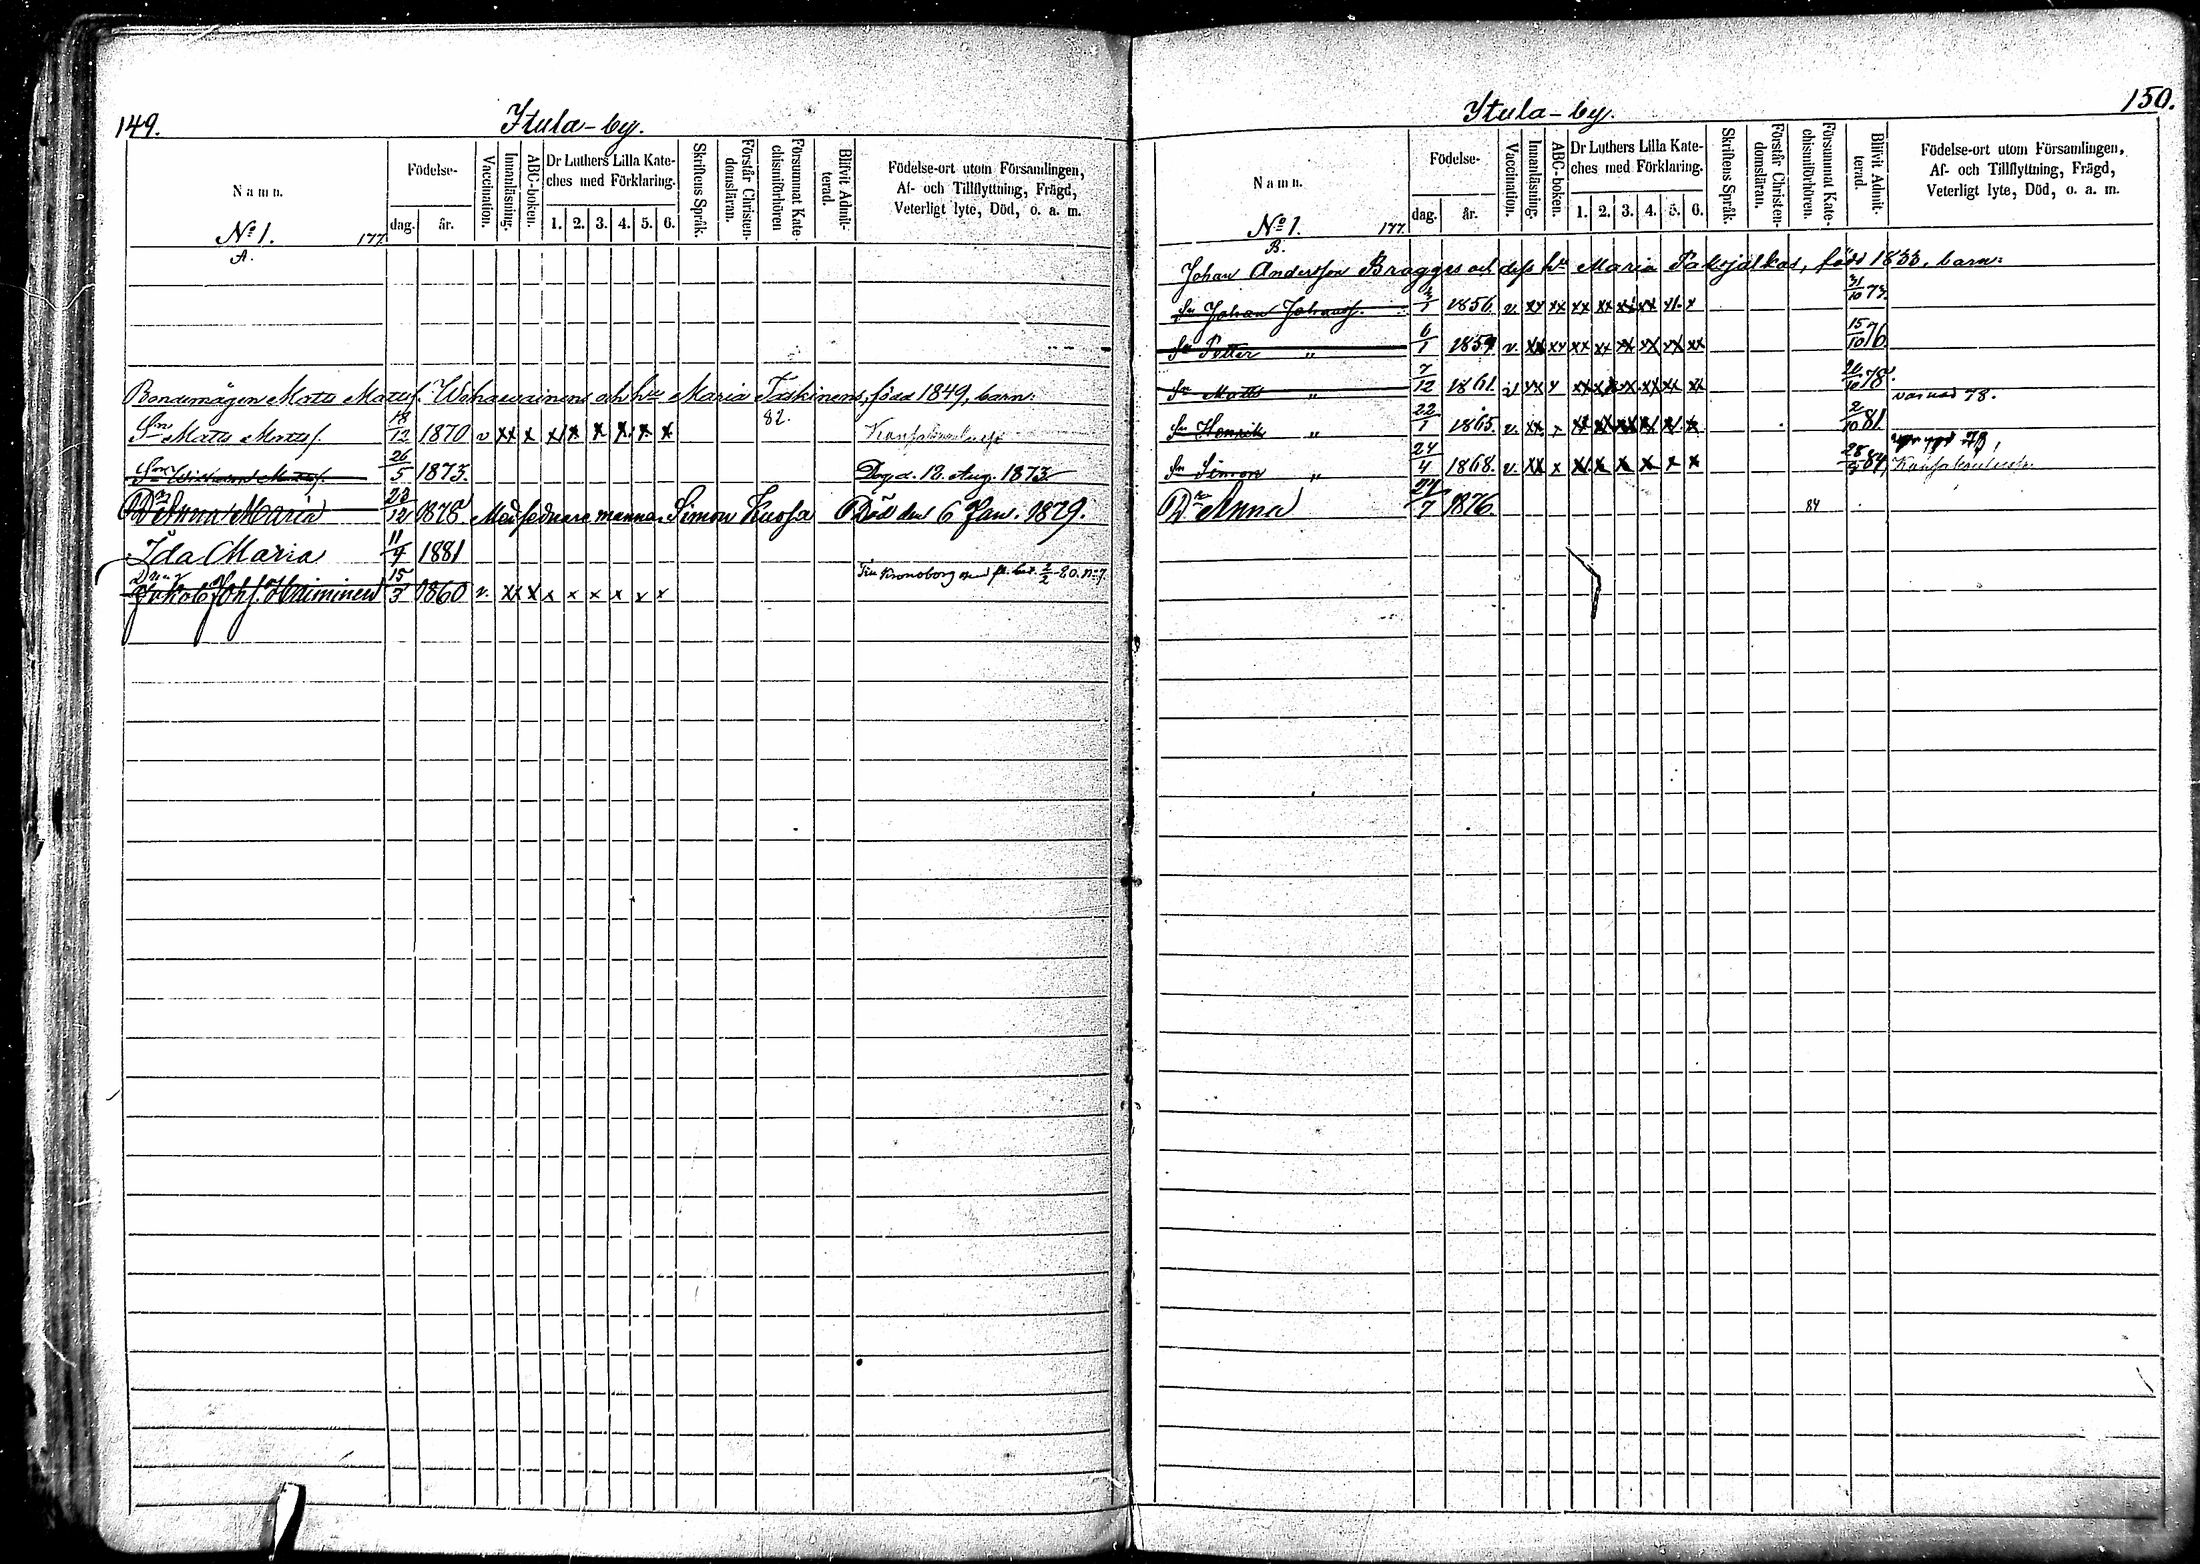 149.
Itula-by.
Namn.
Födelse-
dag.
år.
Vaccination.
Innanläsning.
ABC-boken.
Dr Luthers Lilla Kate-
ches med Förklaring.
1. 2. 3. 4. 5. 6.
Skriftens Språk.
Förstår Christen-
domsläran.
Försummat Kate-
chismiförhören
Blifvit Admit-
terad.
Födelse-ort utom Församlingen,
Af- och Tillflyttning, Frägd,
Veterligt lyte, Död, o. a. m.
No 1. 177.
A.
Bondemågen Matts Mattss. och hu Maria Taskinens, född 1849, barn:
Sn Matts Mattss. 18/12 1870 v xx x x x x x x x 82.
26/5 1873. Dog d. 12. Aug. 1873.
Dr Anna Maria 22/12 1878 Simon Kuossa Död den 6 Jan. 1879.
Ida Maria 11/4 1881
Till Kronoborg med fl. bet. 2/2 80. No 7.
Jakob Johs. Heiminen 15/3 1860 v. xx x x x x x x x
150.
Itula-by.
Namn.
Födelse-
dag.
år.
Vaccination.
Innanläsning.
ABC-boken.
Dr Luthers Lilla Kate-
ches med Förklaring.
1. 2. 3. 4. 5. 6.
Skriftens Språk.
Förstår Christen-
domsläran.
Försummat Kate-
chismiförhören.
Blifvit Admit-
terad.
Födelse-ort utom Församlingen,
Af- och Tillflyttning, Frägd,
Veterligt lyte, Död, o. a. m.
No 1. 177.
B.
Johan Andersson Bragges och dess hu Maria född 1833, barn:
Sn Johan Johanss. 1856. v. xx xx xx xx xx xx x 31/10 73.
Sn Petter " 6/1 1859 v. xx xx xx xx xx xx xx xx 15/10 76
Sn Matts " 7/12 1861. v xx x xx xx xx xx xx 78.
78.
Sn Henrik " 22/1 1865. v. xx x xx xx xx xx x 2/10 81.
Sn Simon " 24/4 1868. v. xx x x x x x x x 84,
Dr Anna 27/7 1876. 84